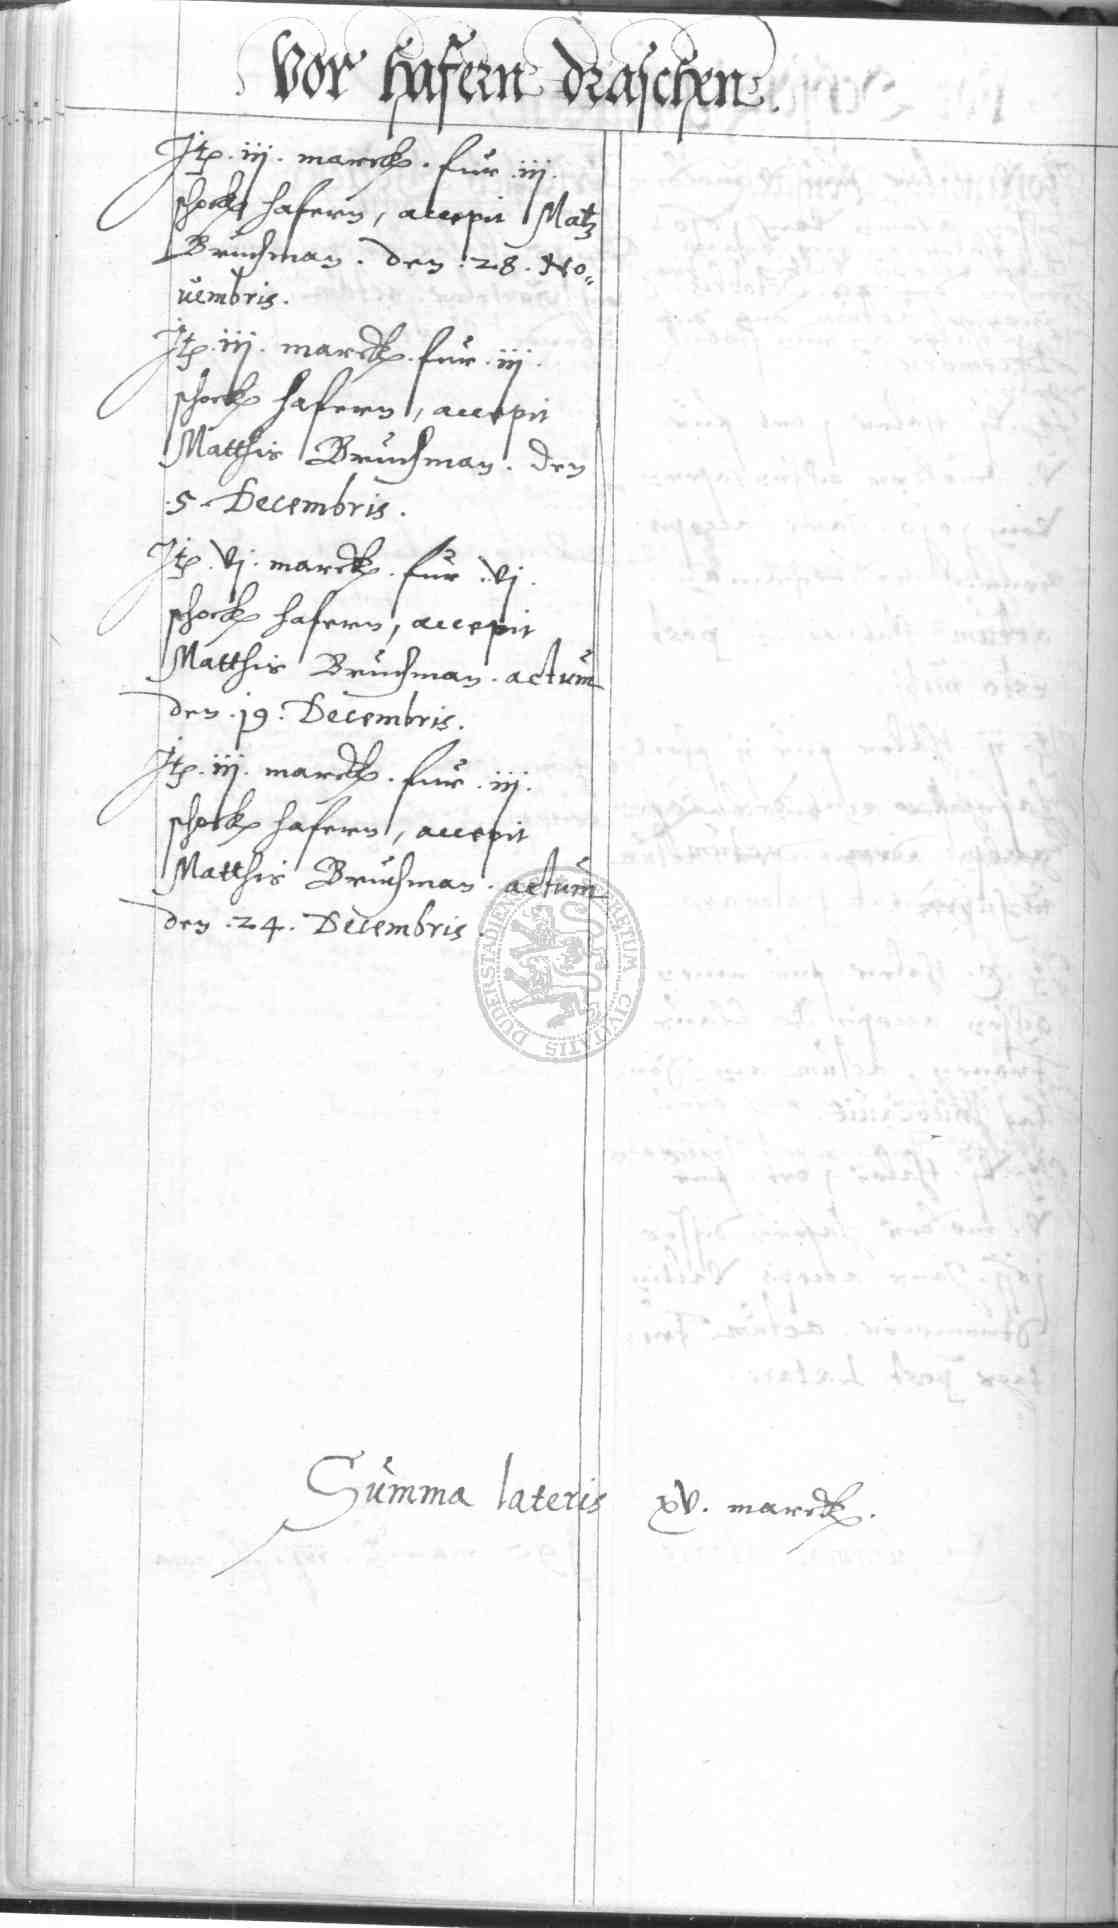 Vor hafern draschen.
Jtp. iij. marck. für .iij.
schock hafern, accepit Matz
Bruchman. den .28. No„
uembris.
Jtp. iij. marck. für .iij.
schock hafern, accepit
Matthis Bruchman. den
.5. Decembris.
Jtp. vj. marck. für .vj.
schock hafern, accepit
Matthis Bruchman. actum
den .19. Decembris.
Jtp. iij. marck. für .iij.
schock hafern, accepit
Matthis Bruchman. actum
den .24. Decembris.
Summa lateris xv. marck.